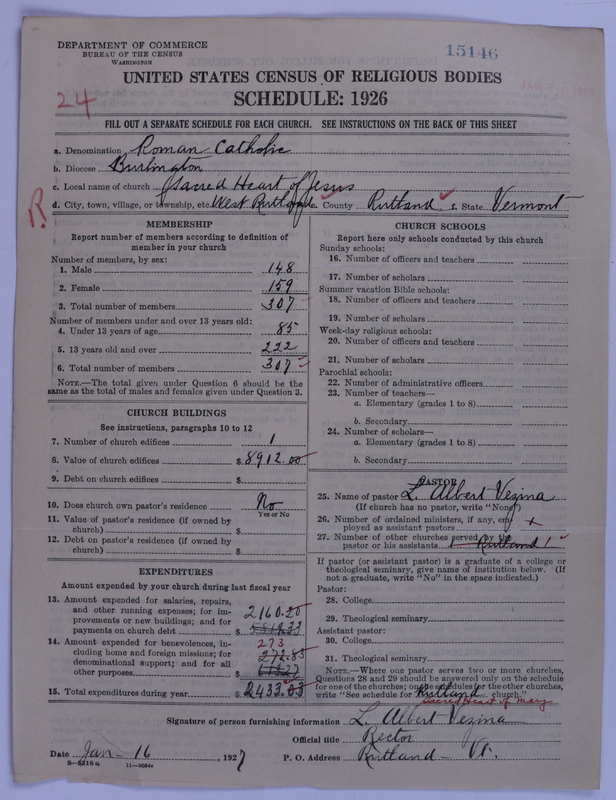 DEPARTMENT OF COMMERCE
BUREAU OF THE CENSUS
WASHINGTON
15146
24
UNITED STATES CENSUS OF RELIGIOUS BODIES
SCHEDULE: 1926
FILL OUT A SEPARATE SCHEDULE FOR EACH CHURCH. SEE INSTRUCTIONS ON THE BACK OF THIS SHEET
a. Denomination Roman Catholic
b. Diocese Burlington
c. Local name of church Sacred Heart of Jesus
R.
d. City, town, village, or township, etc. West Rutland e. County Rutland f. State Vermont
MEMBERSHIP
Report number of members according to definition of
member in your church
Number of members, by sex:
1. Male 148
2. Female 159
3. Total number of members 307
Number of members under and over 13 years old:
4. Under 13 years of age 85
5. 13 years old and over 222
6. Total number of members 307
NOTE.—The total given under Question 6 should be the
same as the total of males and females given under Question 3.
CHURCH BUILDINGS
See instructions, paragraphs 10 to 12
7. Number of church edifices 1
8. Value of church edifices $ 8912.00
9. Debt on church edifices $
10. Does church own pastor's residence? No
Yes or No
11. Value of pastor's residence (if owned by
church) $
12. Debt on pastor's residence (if owned by
church) $
EXPENDITURES
Amount expended by your church during last fiscal year
13. Amount expended for salaries, repairs,
and other running expenses; for im-
provements or new buildings; and for
payments on church debt $ 2160.20
14. Amount expended for benevolences, in-
cluding home and foreign missions; for
denominational support; and for all
other purposes $ 273 272.83
15. Total expenditures during year $ 2433.03
CHURCH SCHOOLS
Report here only schools conducted by this church
Sunday schools:
16. Number of officers and teachers
17. Number of scholars
Summer vacation Bible schools:
18. Number of officers and teachers
19. Number of scholars
Week-day religious schools:
20. Number of officers and teachers
21. Number of scholars
Parochial schools:
22. Number of administrative officers
23. Number of teachers—
a. Elementary (grades 1 to 8)
b. Secondary
24. Number of scholars—
a. Elementary (grades 1 to 8)
b. Secondary
PASTOR
25. Name of pastor L. Albert Vezina
(If church has no pastor, write "None")
26. Number of ordained ministers, if any, em-
ployed as assistant pastors x
27. Number of other churches served by the
pastor or his assistants Rutland 1
If pastor (or assistant pastor) is a graduate of a college or
theological seminary, give name of institution below. (If
not a graduate, write "No" in the space indicated.)
Pastor:
28. College
29. Theological seminary
Assistant pastor:
30. College
31. Theological seminary
NOTE.—Where one pastor serves two or more churches,
Questions 28 and 29 should be answered only on the schedule
for one of the churches; on the schedules for the other churches,
write "See schedule for Rutland church."
Sacred Heart of Mary
Signature of person furnishing information L. Albert Vezina
Official title Rector
Date Jan. 16, 1927 P. O. Address Rutland - Vt.
8-5518a 11-9684